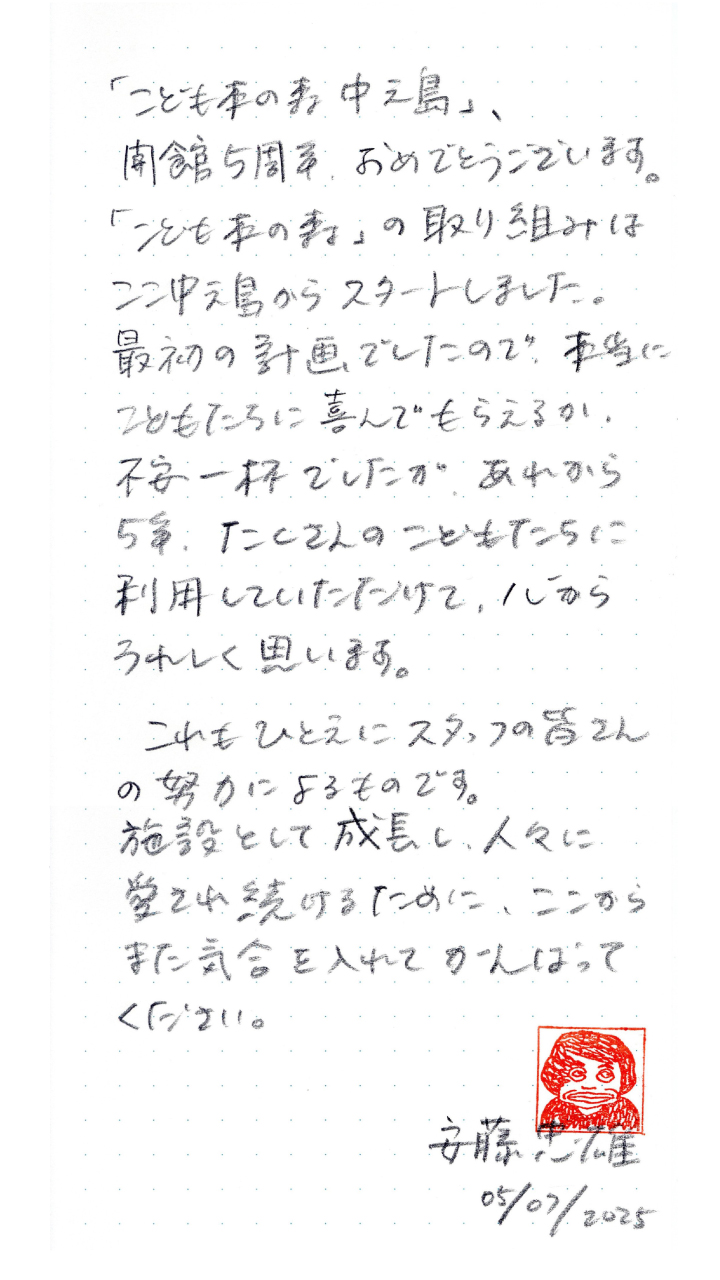 「こども本の森 中之島」、
開館5周年、おめでとうございます。
「こども本の森」の取り組みは
ここ中之島からスタートしました。
最初の計画でしたので、本当に
こどもたちに喜んでもらえるか、
不安一杯でしたが、あれから
5年、たくさんのこどもたちに
利用していただけて、心から
うれしく思います。
これもひとえにスタッフの皆さん
の努力によるものです。
施設として成長し、人々に
愛され続けるために、ここから
また気合を入れてがんばって
ください。
安藤忠雄
05/07/2025